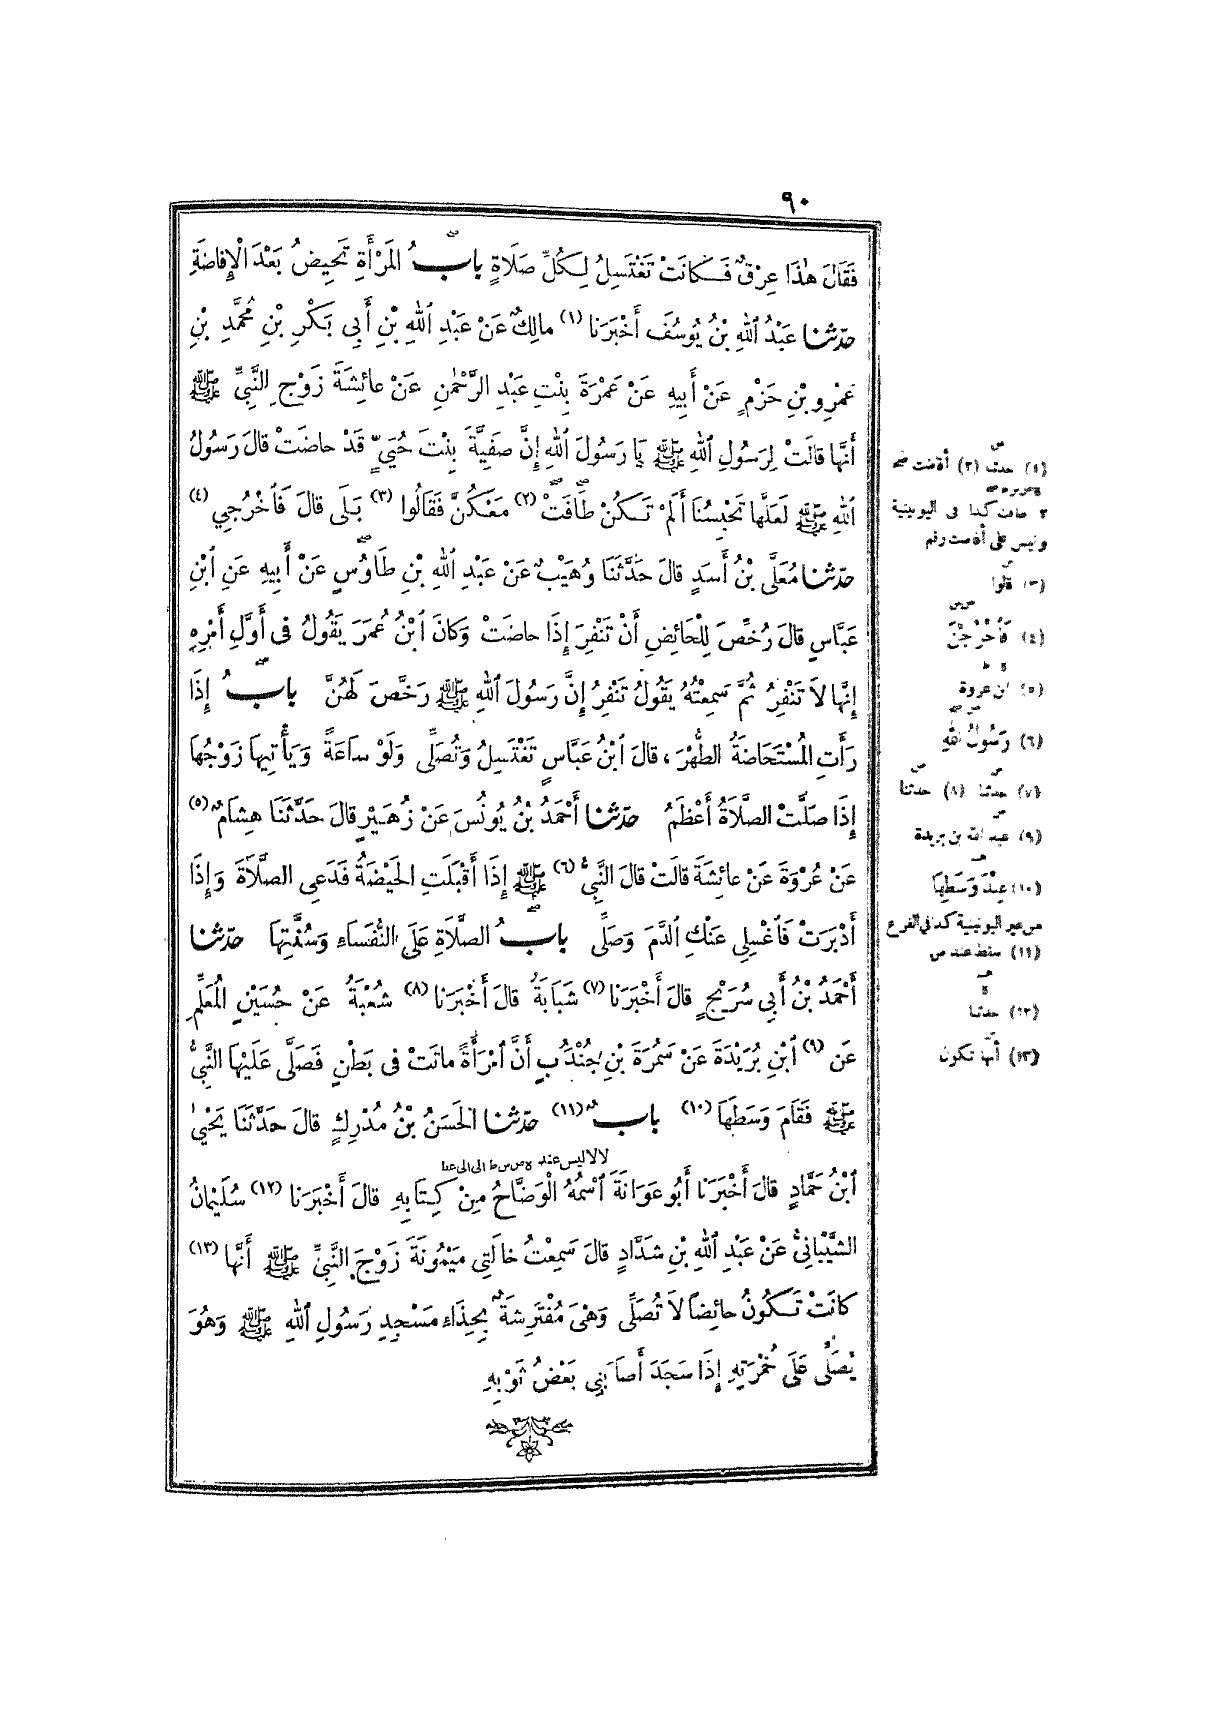 ٩٠
فَقَالَ هٰذَا عِرْقٌ فَكَانَتْ تَغْتَسِلُ لِكُلِّ صَلَاةٍ بابُ المَرْأَةِ تَحِيضُ بَعْدَ الْإِفَاضَةِ
حدّثنا عَبْدُ اللهِ بْنُ يُوسُفَ أَخْبَرَنَا (١) مالِكٌ عَنْ عَبْدِ اللهِ بْنِ أَبِي بَكْرِ بْنِ مُحَمَّدِ بْنِ
عَمْرِو بْنِ حَزْمٍ عَنْ أَبِيهِ عَنْ عَمْرَةَ بِنْتِ عَبْدِ الرَّحْمٰنِ عَنْ عائِشَةَ زَوْجِ النَّبِيِّ ﷺ
أَنَّها قالَتْ لِرَسُولِ اللهِ ﷺ يَا رَسُولَ اللهِ إِنَّ صَفِيَّةَ بِنْتَ حُيَيٍّ قَدْ حاضَتْ قالَ رَسُولُ
اللهِ ﷺ لَعَلَّها تَحْبِسُنَا أَلَمْ تَكُنْ طَافَتْ (٢) مَعَكُنَّ فَقَالُوا (٣) بَلَى قالَ فَاخْرُجِي (٤)
حدّثنا مُعَلَّى بْنُ أَسَدٍ قالَ حَدَّثَنَا وُهَيْبٌ عَنْ عَبْدِ اللهِ بْنِ طَاوُسٍ عَنْ أَبِيهِ عَنِ ابْنِ
عَبَّاسٍ قالَ رُخِّصَ لِلْحَائِضِ أَنْ تَنْفِرَ إِذَا حاضَتْ وَكانَ ابْنُ عُمَرَ يَقُولُ فِى أَوَّلِ أَمْرِهِ
إِنَّها لاَ تَنْفِرُ ثُمَّ سَمِعْتُهُ يَقُولُ تَنْفِرُ إِنَّ رَسُولَ اللهِ ﷺ رَخَّصَ لَهُنَّ بابُ إِذَا
رَأَتِ المُسْتَحَاضَةُ الطُّهْرَ، قالَ ابْنُ عَبَّاسٍ تَغْتَسِلُ وَتُصَلِّى وَلَوْ سَاعَةً وَيَأْتِيها زَوْجُهَا
إِذَا صَلَّتْ الصَّلاَةُ أَعْظَمُ حدّثنا أَحْمَدُ بْنُ يُونُسَ عَنْ زُهَيْرٍ قالَ حَدَّثَنَا هِشَامٌ (٥)
عَنْ عُرْوَةَ عَنْ عائِشَةَ قالَتْ قالَ النَّبِيُّ (٦) ﷺ إِذَا أَقْبَلَتِ الحَيْضَةُ فَدَعِى الصَّلاَةَ وَإِذَا
أَدْبَرَتْ فَاغْسِلِى عَنْكِ الدَّمَ وَصَلِّى بابُ الصَّلاَةِ عَلَى النُّفَسَاءِ وَسُنَّتِها حدّثنا
أَحْمَدُ بْنُ أَبِي سُرَيْجٍ قالَ أَخْبَرَنَا (٧) شَبَابَةُ قالَ أَخْبَرَنَا (٨) شُعْبَةُ عَنْ حُسَيْنٍ المُعَلِّمِ
عَنِ (٩) ابْنِ بُرَيْدَةَ عَنْ سَمُرَةَ بْنِ جُنْدُبٍ أَنَّ امْرَأَةً ماتَتْ فِى بَطْنٍ فَصَلَّى عَلَيْهَا النَّبِيُّ
ﷺ فَقَامَ وَسَطَهَا (١٠) بابٌ (١١) حدّثنا الحَسَنُ بْنُ مُدْرِكٍ قالَ حَدَّثَنَا يَحْيىٰ
لا لا ليس عند
ابْنُ حَمَّادٍ قالَ أَخْبَرَنَا أَبُو عَوَانَةَ اسْمُهُ الْوَضَّاحُ مِنْ كِتَابِهِ قالَ أَخْبَرَنَا (١٢) سُلَيْمَانُ
الشَّيْبَانِيُّ عَنْ عَبْدِ اللهِ بْنِ شَدَّادٍ قالَ سَمِعْتُ خالَتِي مَيْمُونَةَ زَوْجَ النَّبِيِّ ﷺ أَنَّها (١٣)
كانَتْ تَكُونُ حائِضًا لاَ تُصَلِّى وَهْىَ مُفْتَرِشَةٌ بِحِذَاءِ مَسْجِدِ رَسُولِ اللهِ ﷺ وَهُوَ
يُصَلِّى عَلَى خُمْرَتِهِ إِذَا سَجَدَ أَصَابَنِي بَعْضُ ثَوْبِهِ
(١) حدثنا (٢) أفاضت صح
٢ طافت كذا فى اليونينية
وليس على أفاضت رقم
(٣) قالوا
(٤) فَاخْرُجْنَ
(٥) ابن عروة
(٦) رَسُولُ اللهِ
(٧) حدثنا (٨) حدثنا
(٩) عبد الله بن بريدة
(١٠) عِنْدَ وَسَطِهَا
من غير اليونينية كذا فى الفرع
(١١) سقط عند ص
(١٢) حدثنا
(١٣) أنها تكون